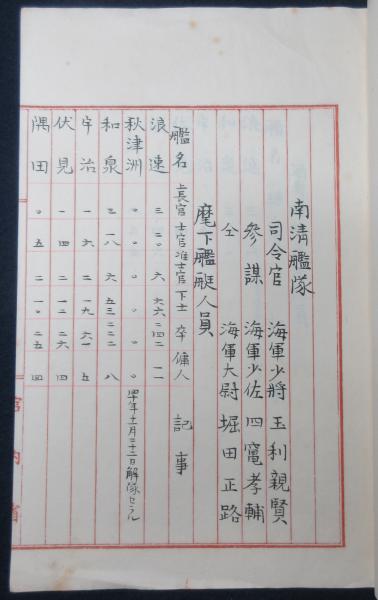 南清艦隊
司令官 海軍少将 玉利親賢
参謀 海軍少佐 四竈孝輔
仝 海軍大尉 堀田正路
麾下艦艇人員
艦名 上長官 士官 准士官 下士 卒 傭人 記事
浪速 三 二〇 六 六六 二四二 一一
秋津洲 〇 〇 〇 〇 〇 〇
和泉 三 一八 六 五三 二二二 八
宇治 一 六 二 一九 六一 五
伏見 一 四 二 一二 二六 四
隅田 〇 五 二 一〇 二五 四
宮内省